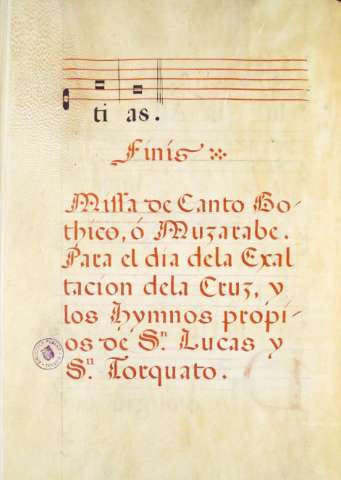 ti as.
Finis
Missa de Canto Go-
thico, ó Muzarabe.
Para el dia dela Exal
tacion dela Cruz, y
los Hymnos propi-
os de Sn. Lucas y
Sn. Torquato.